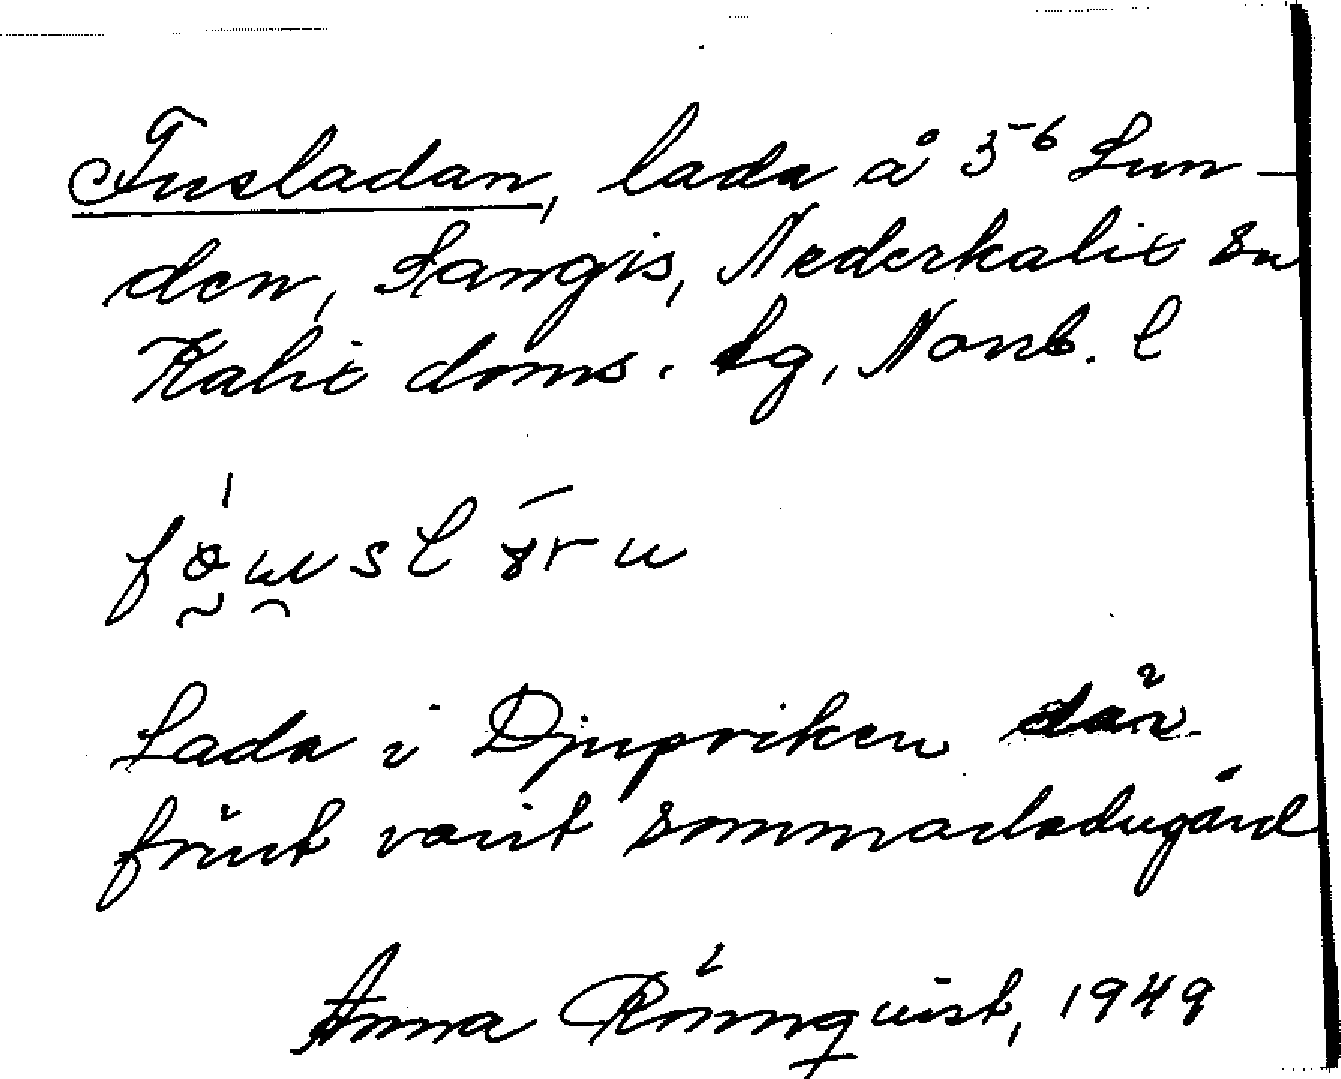 Fusladan, lada å 5⁶ Lun-
den, Sangis, Nederkalix sn
Kalix doms. lg, Norrb. l
Lada i Djupviken där
förut varit sommarladugård
Anna Rönnquist, 1949